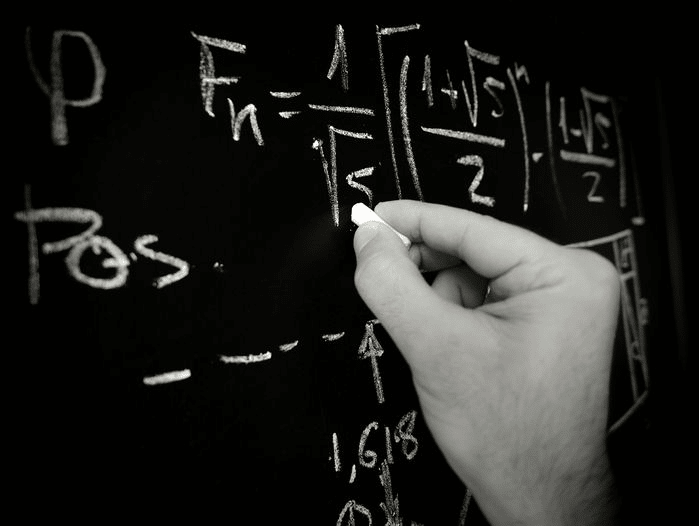 φ F_n = 1/√5 [((1+√5)/2)^n · ((1-√5)/2)
Pos.
1,618